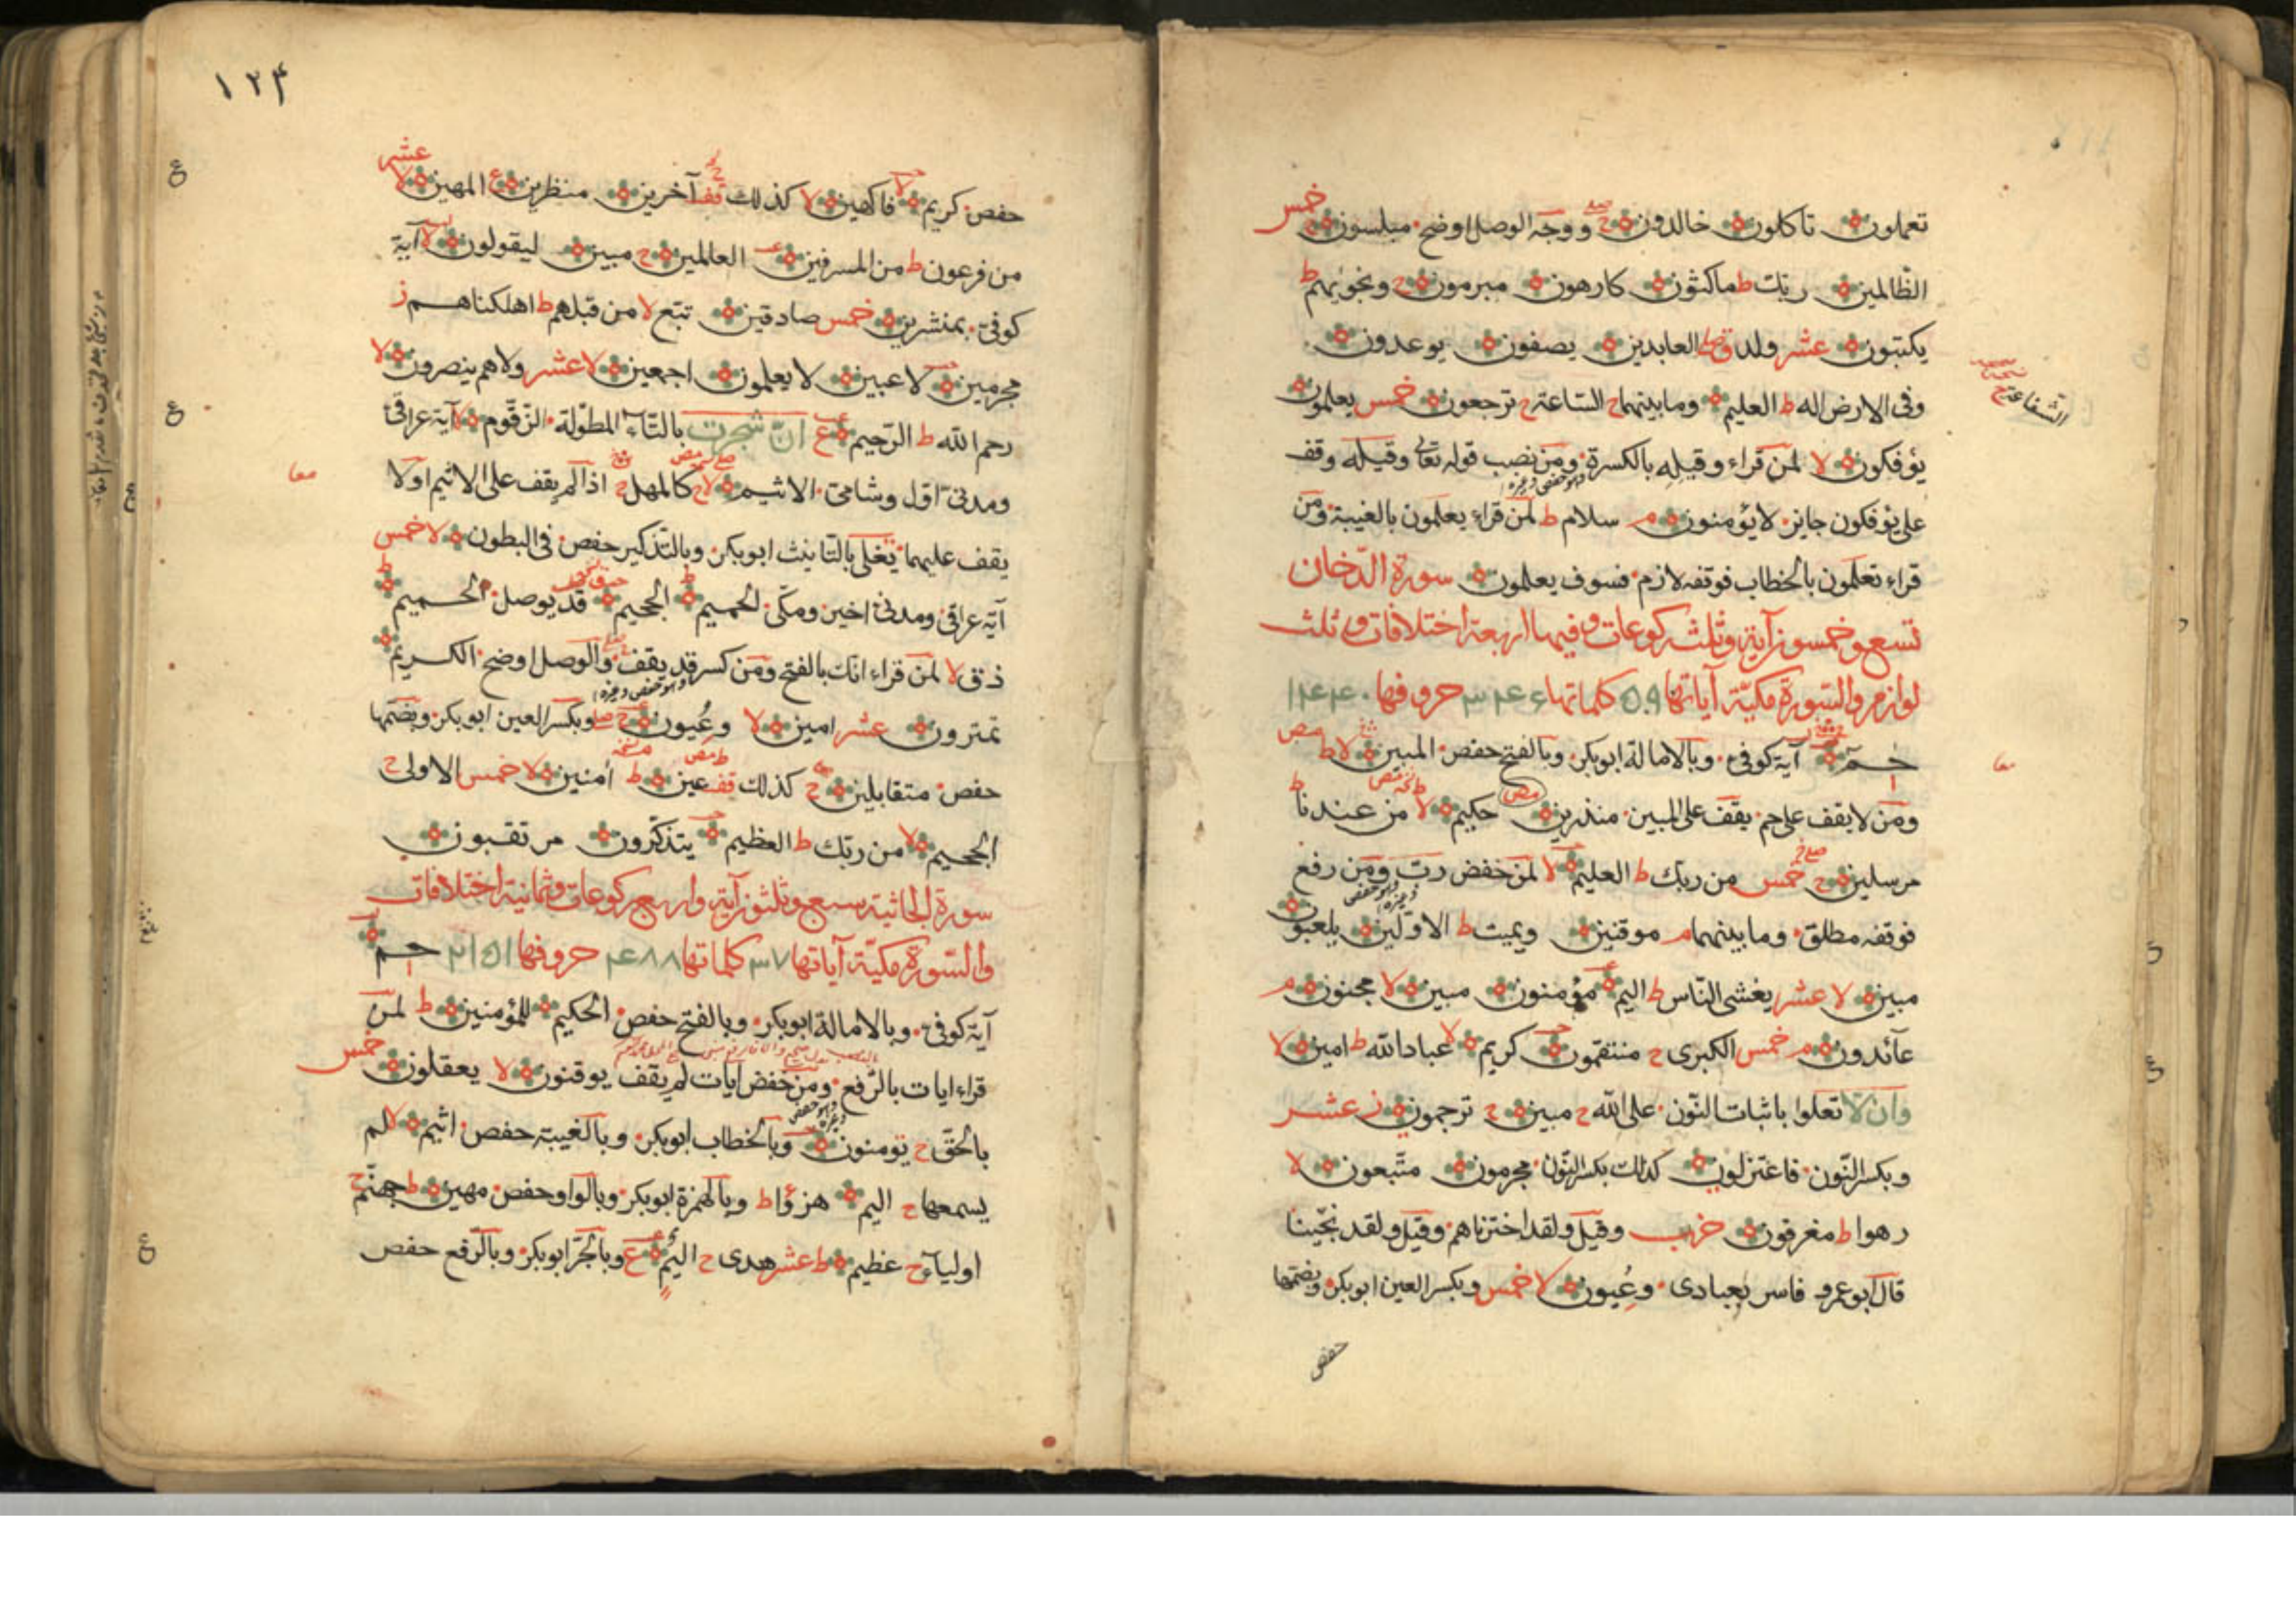 تعملون تاكلون خالدون ح صلے ووجه الوصل اوضح مبلسون ج خمس
الظالمين ربك ط ماكثون كارهون مبرمون ح ونجويهم ط
يكتبون عشر ولد قصلے العابدين يصفون يوعدون
وفى الارض اله ط العليم وما بينهما ح الساعة ح ترجعون خمس يعلمون
الشفاعة ح
يؤفكون لا لمن قراء وقيله بالكسرة ومن نصب قوله تعالى وقيله وقف
على يؤفكون جايز لا يؤمنون م سلام ط لمن قراء يعلمون بالغيبة ومن
وهو حفص وغيره
قراء تعلمون بالخطاب فوقفه لازم فسوف يعلمون سورة الدّخان
تسع وخمسون آية وثلث ركوعات وفيها اربعة اختلافات وثلث
لوازم والسورة مكيّة آياتها ٥٩ كلماتها ٣٤٦ حروفها ١٤٤٠
حم آية كوفى وبالامالة ابوبكر وبالفتح حفص المبين لا ط
ومن لا يقف على حم يقف على المبين منذرين حكيم لا من عندنا ط
مرسلين ح خمس من ربك ط العليم لا لمن خفض رب ومن رفع
فوقفه مطلق وما بينهما م موقنين ويميت ط الاولين يلعبون
مبين لا عشر يغشى الناس ط اليم مؤمنون مبين لا مجنون م
عآئدون م خمس الكبرى ح منتقمون كريم لا عباد الله ط امين لا
وان لا تعلوا باثبات النون على الله ح مبين ح ترجمون ز عشر
وبكسر النّون فاعتزلون كذلك بكسر النّون مجرمون متّبعون لا
رهوا ط مغرقون خرب وقيل ولقد اخترناهم وقيل ولقد نجّينا
قال ابو عمرو فاسر بعبادى وعيون لا خمس وبكسر العين ابوبكر وبضمّها
حفص
١٢۴
حفص كريم لا فاكهين لا كذلك قف آخرين منظرين ع المهين لا عشر
من فرعون ط من المسرفين العالمين ح مبين ليقولون لا آية
كوفى بمنشرين خمس صادقين تبع لا من قبلهم ط اهلكناهم ز
مجرمين لاعبين لا يعلمون اجمعين لا عشر ولا هم ينصرون لا
رحم الله ط الرّحيم ع انّ شجرت بالتّاء المطوّلة الزّقّوم لا آية عراقى
ومدنى اوّل وشامى الاثيم لا ح كالمهل ح اذا لم يقف على الاثيم اولا
يقف عليهما تغلى بالتانيث ابوبكر وبالتذكير حفص فى البطون لا خمس
آية عراقى ومدنى اخير ومكّى الحميم ط الجحيم قد يوصل الحميم ط
ذق لا لمن قراء انّك بالفتح ومن كسر قد يقف والوصل اوضح الكريم
وهو حفص وغيره
تمترون عشر امين لا وعيون ح صلے وبكسر العين ابوبكر وبضمّها
حفص متقابلين ح كذلك قف عين ط آمنين لا خمس الاولى ح
الجحيم لا من ربّك ط العظيم يتذكّرون مرتقبون
سورة الجاثية سبع وثلثون آية واربع ركوعات وثمانية اختلافات
والسّورة مكيّة آياتها ٣٧ كلماتها ٤٨٨ حروفها ٢١٥١ حم
آية كوفى وبالامالة ابوبكر وبالفتح حفص الحكيم للمؤمنين ط لمن
قراء ايات بالرّفع ومن خفض ايات لم يقف يوقنون لا يعقلون خمس
بالحقّ ح تؤمنون وبالخطاب ابوبكر وبالغيبة حفص اثيم لا لم
يسمعها ح اليم هزؤا ط وبالهمزة ابوبكر وبالواو حفص مهين ط جهنّم ح
اولياء ح عظيم ط عشر هدى ح اليم ع وبالجرّ ابوبكر وبالرّفع حفص